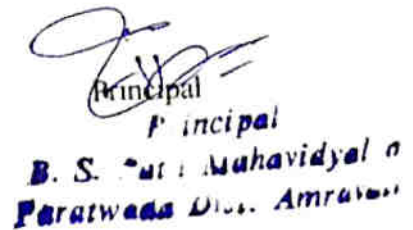 Principal
P incipal
B. S. Mahavidyal
Paratwada Dist. Amravati